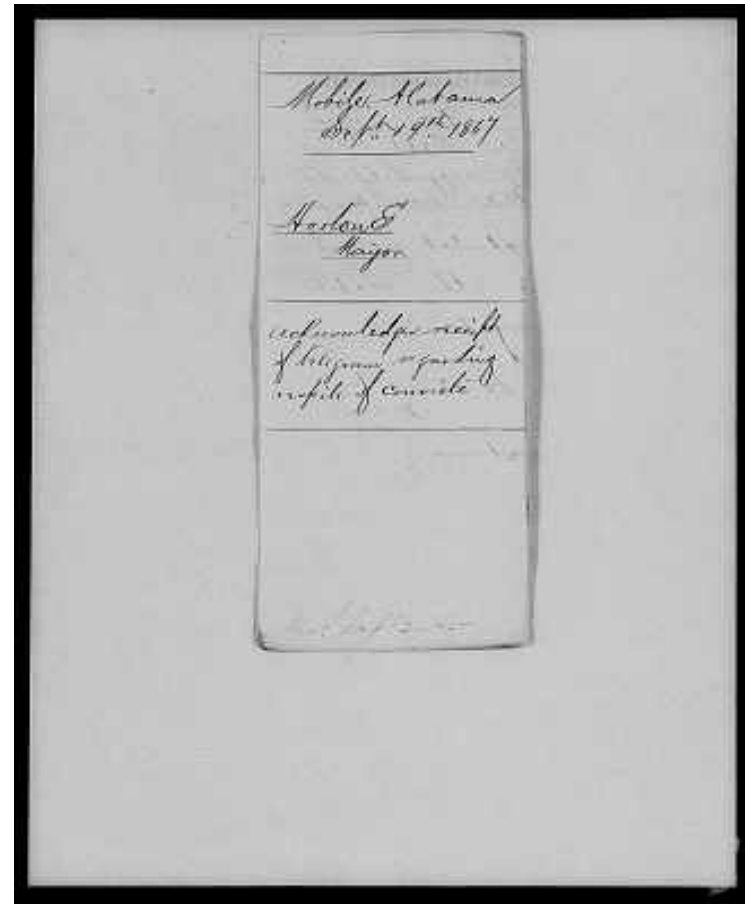 Mobile, Alabama
Sept. 19th 1867
Horton G
Mayor
acknowledges receipt
of telegram regarding
respite of convicts